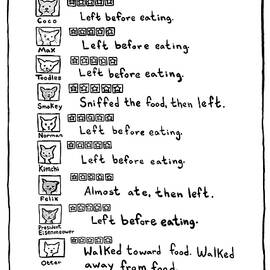 Coco
Left before eating.
Max
Left before eating.
Toodles
Left before eating.
Smokey
Sniffed the food, then left.
Norman
Left before eating.
Kimchi
Left before eating.
Felix
Almost ate, then left.
President
Eisenmeower
Left before eating.
Otter
Walked toward food. Walked
away from food.